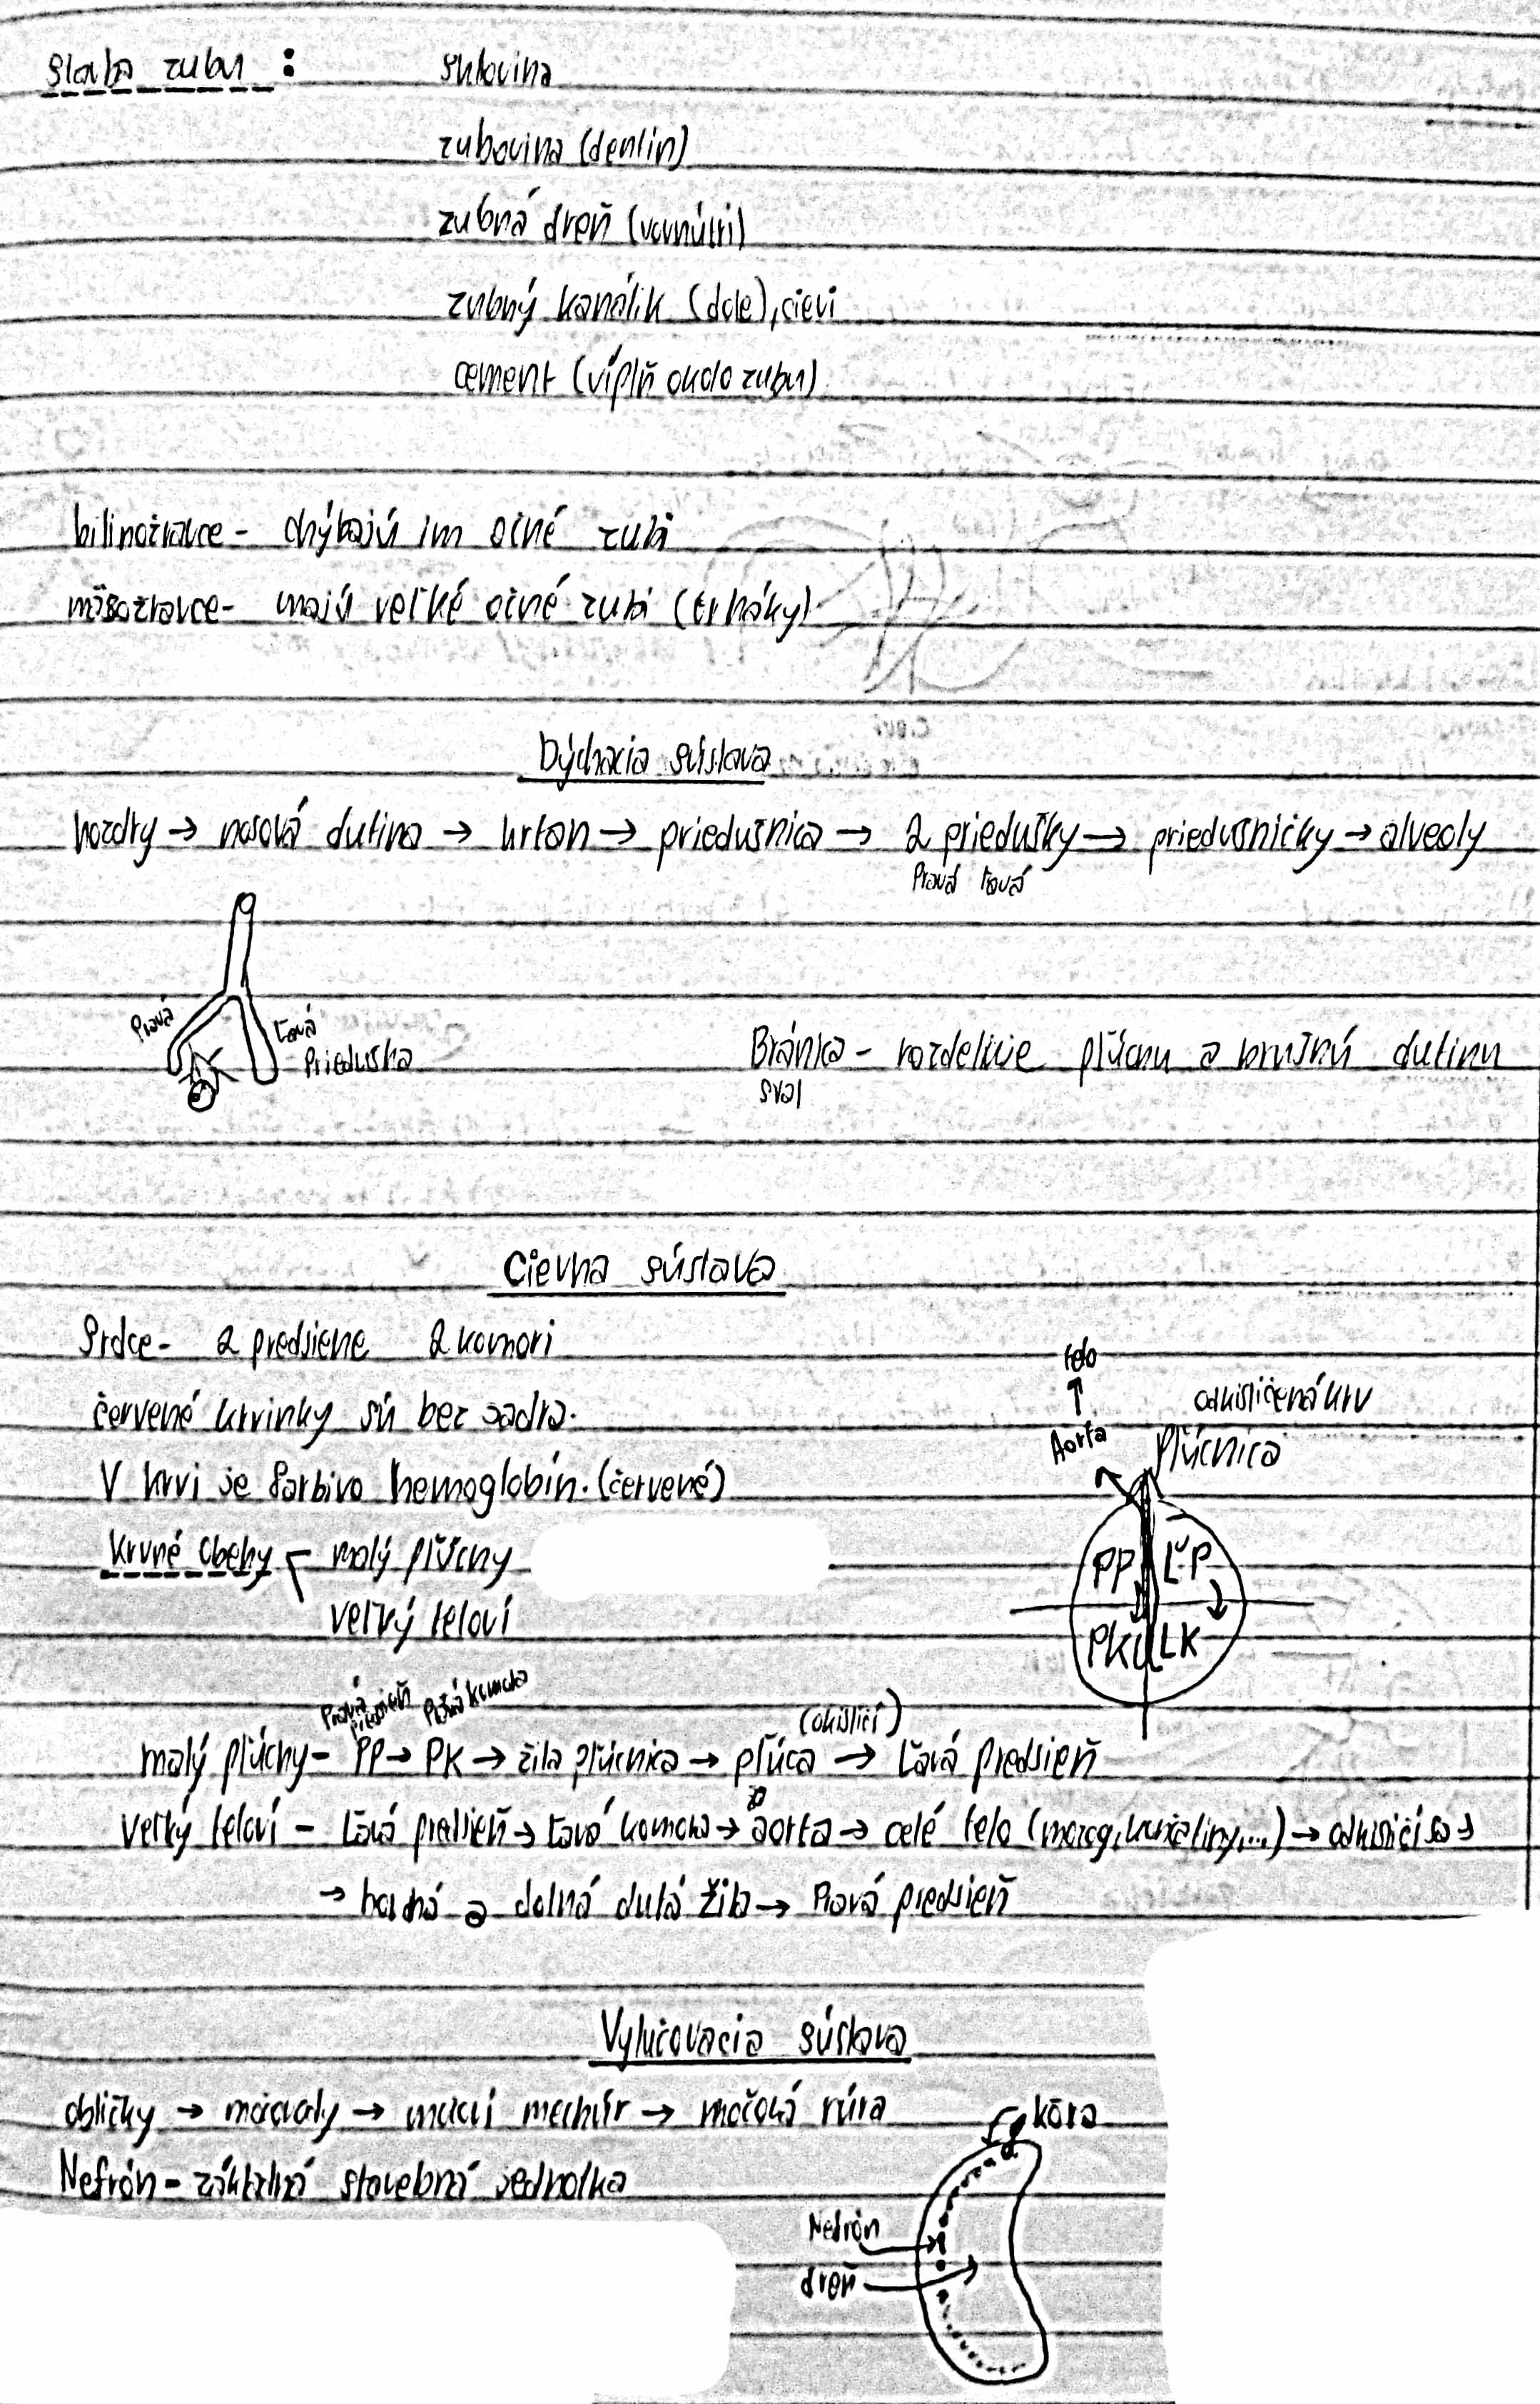 Stavba zubu : sklovina
zubovina (dentín)
zubná dreň (vovnútri)
zubný kanálik (dole), cievi
cement (víplň okolo zubu)
bilinožravce - chýbajú im očné zubi
mäsožravce - majú veľké očné zubi (trháky)
Dýchacia sústava
nozdry → nosová dutina → hrtan → priedušnica → 2 priedušky → priedušničky → alveoly
Pravá ľavá
Pravá
Ľavá
Priedushka
Bránica - rozdeluje pľúcnu a brušnú dutinu
sval
Cievna sústava
Srdce - 2 predsiene 2 komori
červené krvinky sú bez jadra.
V krvi je farbivo hemoglobín. (červené)
Krvné obehy malý pľúcny
veľký teloví
telo
↑
Aorta
odkisličená krv
Pľúcnica
PP ĽP
PK LK
Pravá predsieň Pravá komora
(okisličí)
malý pľúcny - PP → PK → žila pľúcnica → pľúca → Ľavá predsieň
Veľký teloví - Ľavá predsieň → ľavá komora → aorta → celé telo (mozog, končatiny,...) → odkisličí sa →
→ horná a dolná dutá žila → Pravá predsieň
Vylučovacia sústava
obličky → močovody → močoví mechúr → močová rúra
Nefrón - základná stavebná jednotka
kôra
Nefrón
dreň